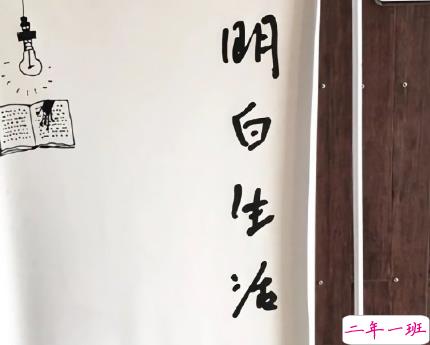 明白生活
二年一班